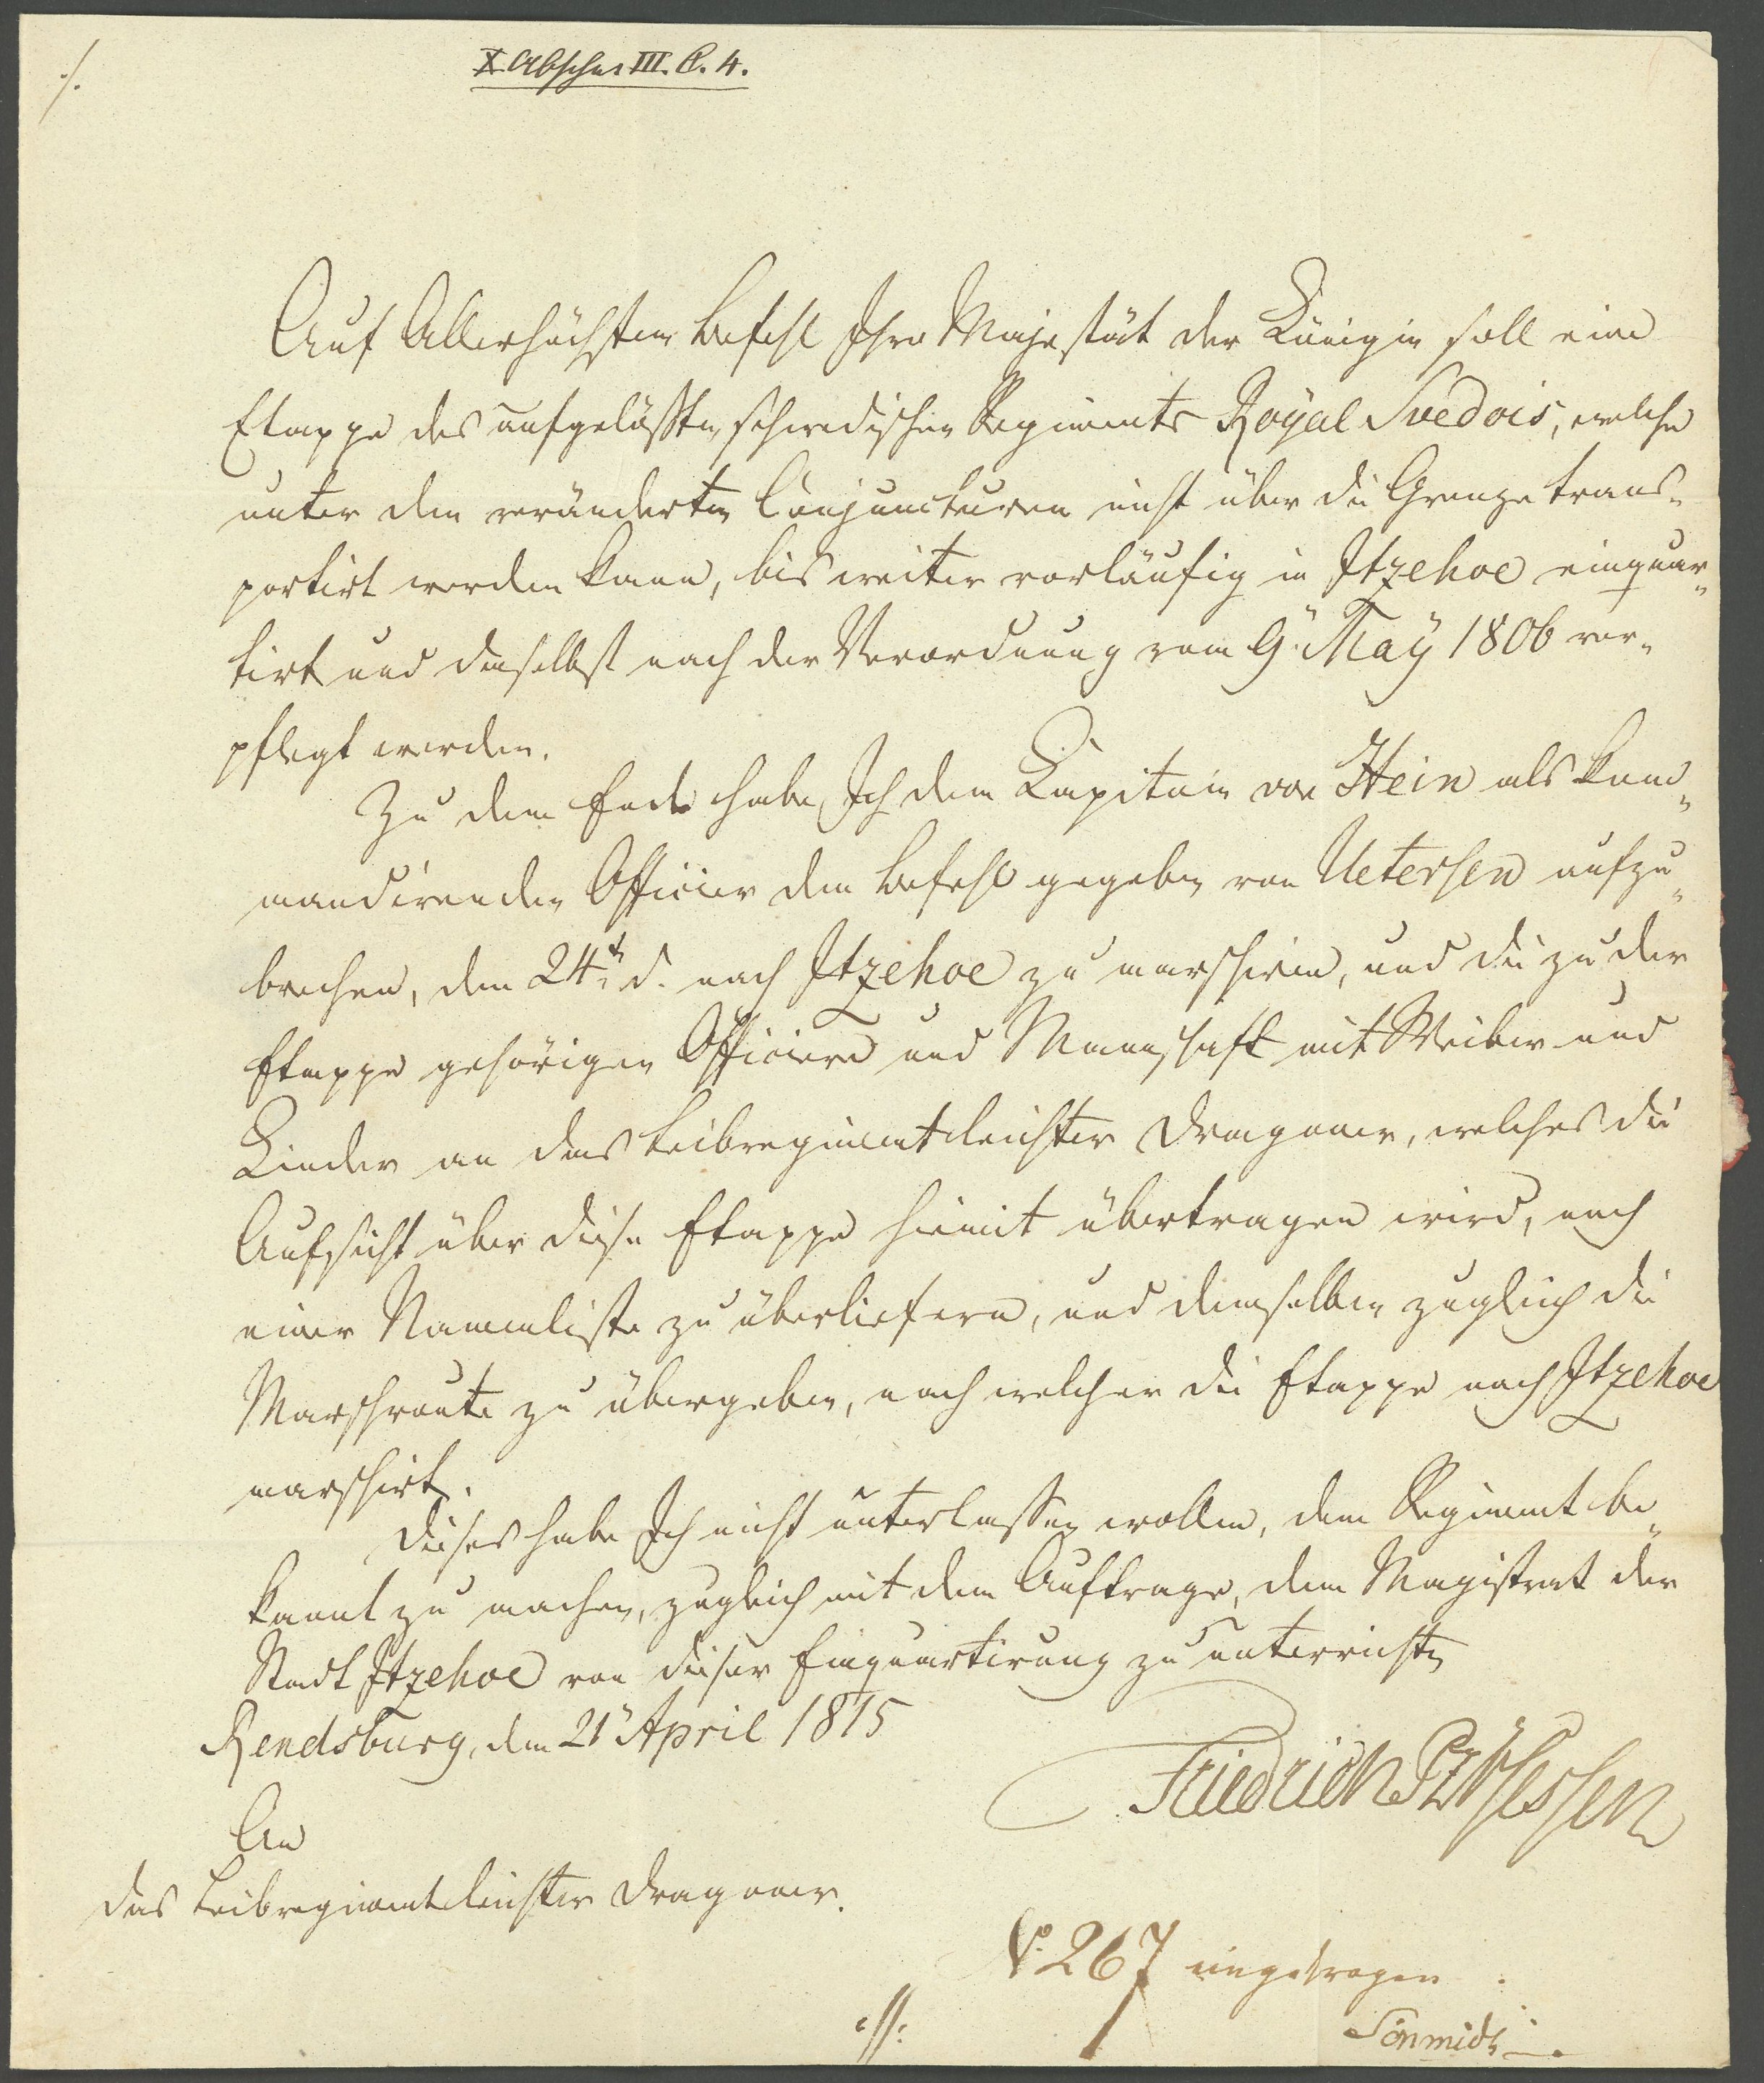 X. Abschn III. C. 4.
./.
Auf Allerhöchsten Befehl Ihro Majestät der Königin soll eine
Etappe des aufgelößten schwedischen Regiments Royal Svedois, welche
unter den veränderten Conjuncturen nicht über die Grenze trans-
portirt werden kann, bis weiter vorläufig in Itzehoe einquar-
tirt und daselbst nach der Verordnung vom 9. May 1806 ver-
pflegt werden.
Zu dem Ende habe Ich dem Kapitain von Stein als kom-
mandirenden Officier den Befehl gegeben von Uetersen aufzu-
brechen, den 24t. d. nach Itzehoe zu marschiren, und die zu der
Etappe gehörigen Officiere und Mannschaft mit Weiber und
Kinder an das Leibregiment leichter Dragoner, welches die
Aufsicht über diese Etappe hiemit übertragen wird, nach
einer Namenliste zu überliefern, und demselben zugleich die
Marschroute zu übergeben, nach welcher die Etappe nach Itzehoe
marschirt.
Dieses habe Ich nicht unterlassen wollen, dem Regiment be-
kannt zu machen, zugleich mit dem Auftrage, dem Magistrat der
Stadt Itzehoe von dieser Einquartirung zu unterrichten
Rendsburg, den 21. April 1815
Friedrich PzvHessen
An
das Leibregiment leichter Dragoner.
No. 267 eingetragen.
Schmidt